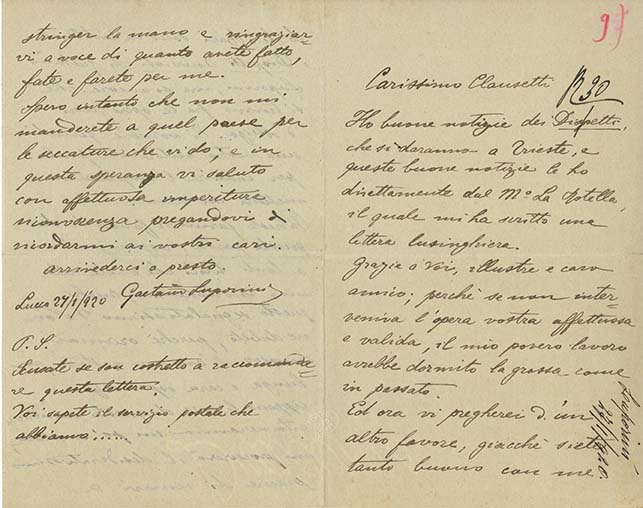 97
Carissimo Clausetti
R 30
Ho buone notizie dei Dispetti,
che si daranno a Trieste, e
queste buone notizie le ho
direttamente dal Mº La Rotella,
il quale mi ha scritto una
lettera lusinghiera.
Grazie a Voi, illustre e caro
amico; perchè se non inter-
veniva l'opera vostra affettuosa
e valida, il mio povero lavoro
avrebbe dormito la grossa come
in passato.
Ed ora vi pregherei d'un
altro favore, giacchè siete
tanto buono con me
Luporini
27/1/920.
stringer la mano e ringraziar-
vi a voce di quanto avete fatto,
fate e farete per me.
Spero intanto che non mi
manderete a quel paese per
le seccature che vi do; e in
questa speranza vi saluto
con affettuosa imperitura
riconoscenza pregandovi di
ricordarmi ai vostri cari.
arrivederci a presto.
Lucca 27/1/920 Gaetano Luporini
P. S.
Scusate se son costretto a raccomanda-
re questa lettera.
Voi sapete il servizio postale che
abbiamo.....